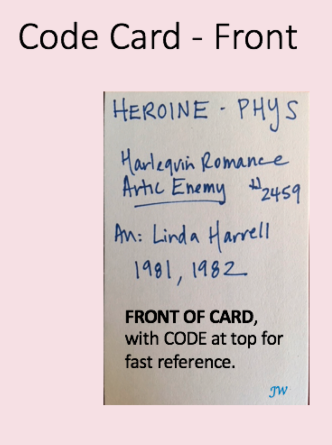 Code Card - Front
HEROINE - PHYS
Harlequin Romance
Artic Enemy #2459
Au: Linda Harrell
1981, 1982
FRONT OF CARD,
with CODE at top for
fast reference.
JW